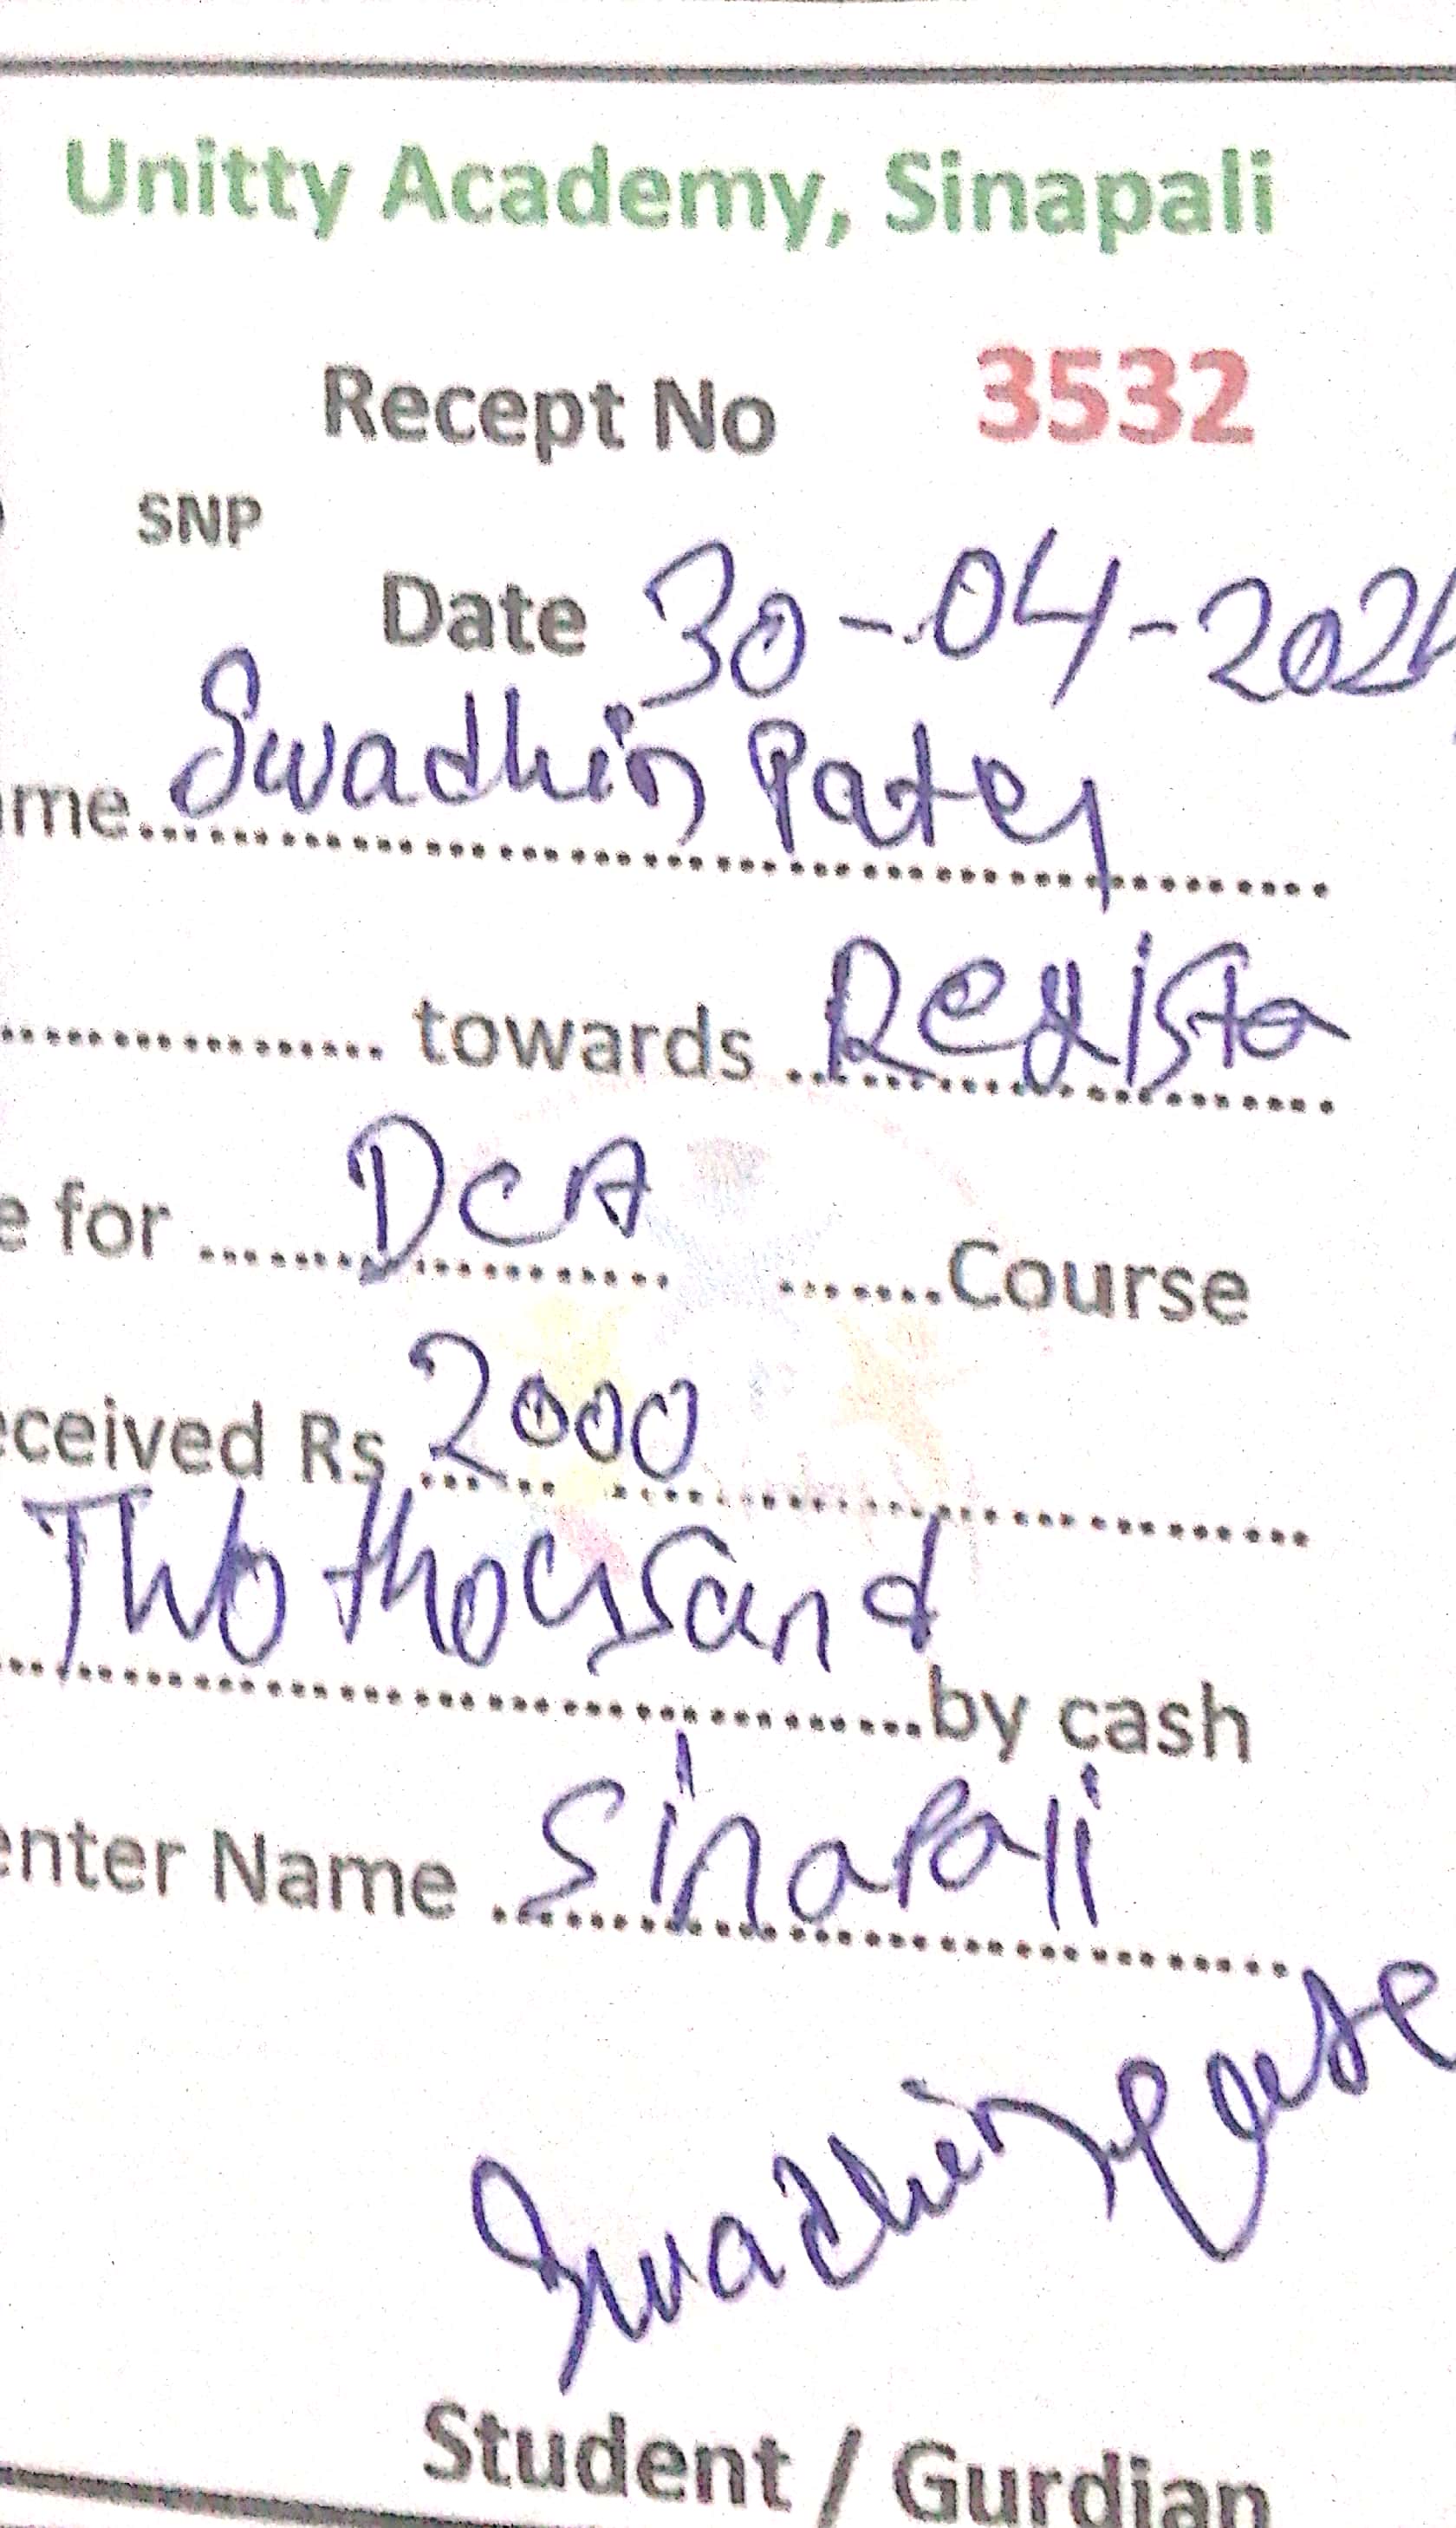 Unitty Academy, Sinapali
Recept No 3532
SNP
Date 30-04-202
me Swadhin Patel
towards Registo
e for DCA Course
ceived Rs 2000
Two thousand
by cash
enter Name Sinapali
Swadhin Pate
Student / Gurdian